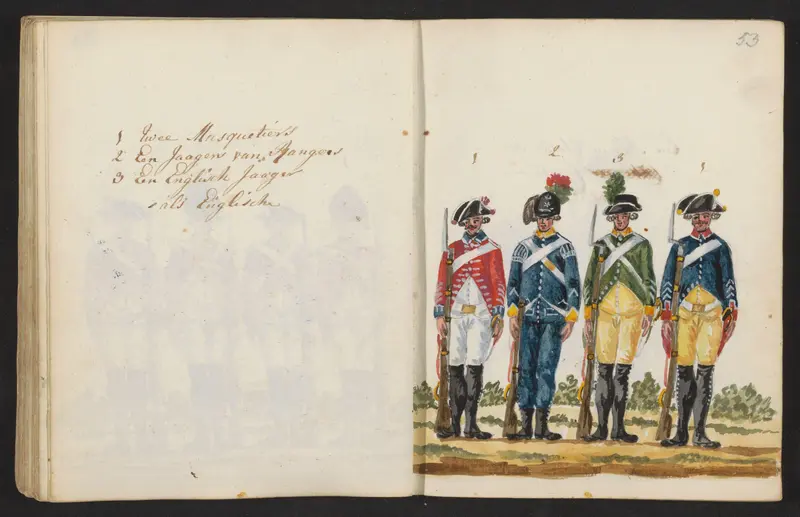 1 Twee Musquetiers
2 Een Jaager van Rangers
3 Een Englisch Jaager
als Englische
53
1 2 3 1